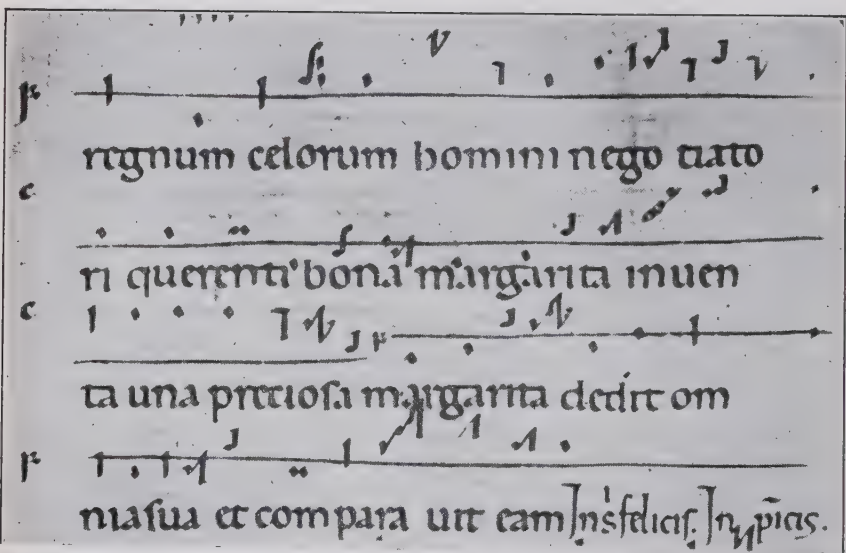 regnum celorum homini nego tiato
ri querenti bona margarita inuen
ta una preciosa margarita dedit om
nia sua et compara uit eam In s felicis. In